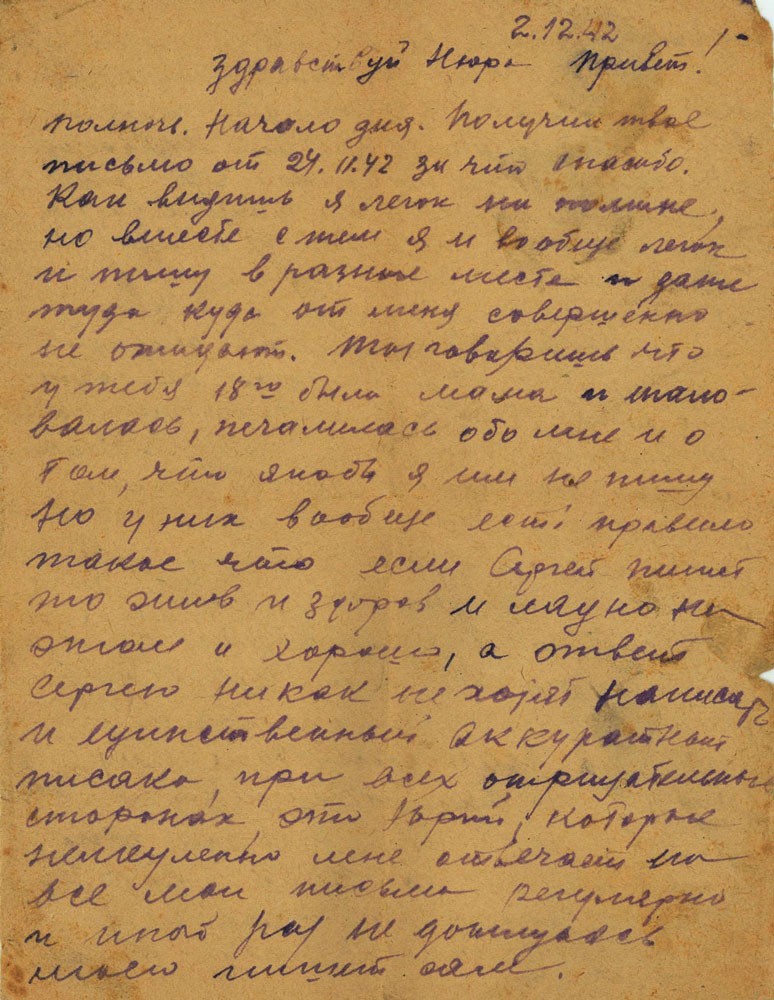 2.12.42
Здравствуй Нюра Привет!
Полночь. Начало дня. Получил твое
письмо от 24.11.42 за что спасибо.
Как видишь я легок на помине,
но вместе с тем я и вообще легок
и пишу в разные места и даже
туда куда от меня совершенно
не ожидают. Ты говоришь что
у тебя 18го была мама и жало-
валась, печалилась обо мне и о
том, что якобы я им не пишу
Но у них вообще есть правило
такое что если Сергей пишет
то жив и здоров и ладно на
этом и хорошо, а ответ
Сергею никак не хотят написать
и единственный аккуратный
писака, при всех отрицательных
сторонах, это Юрий, которые
немедленно мне отвечает на
все мои письма регулярно
и иной раз не дождавшись
моего пишет сам.